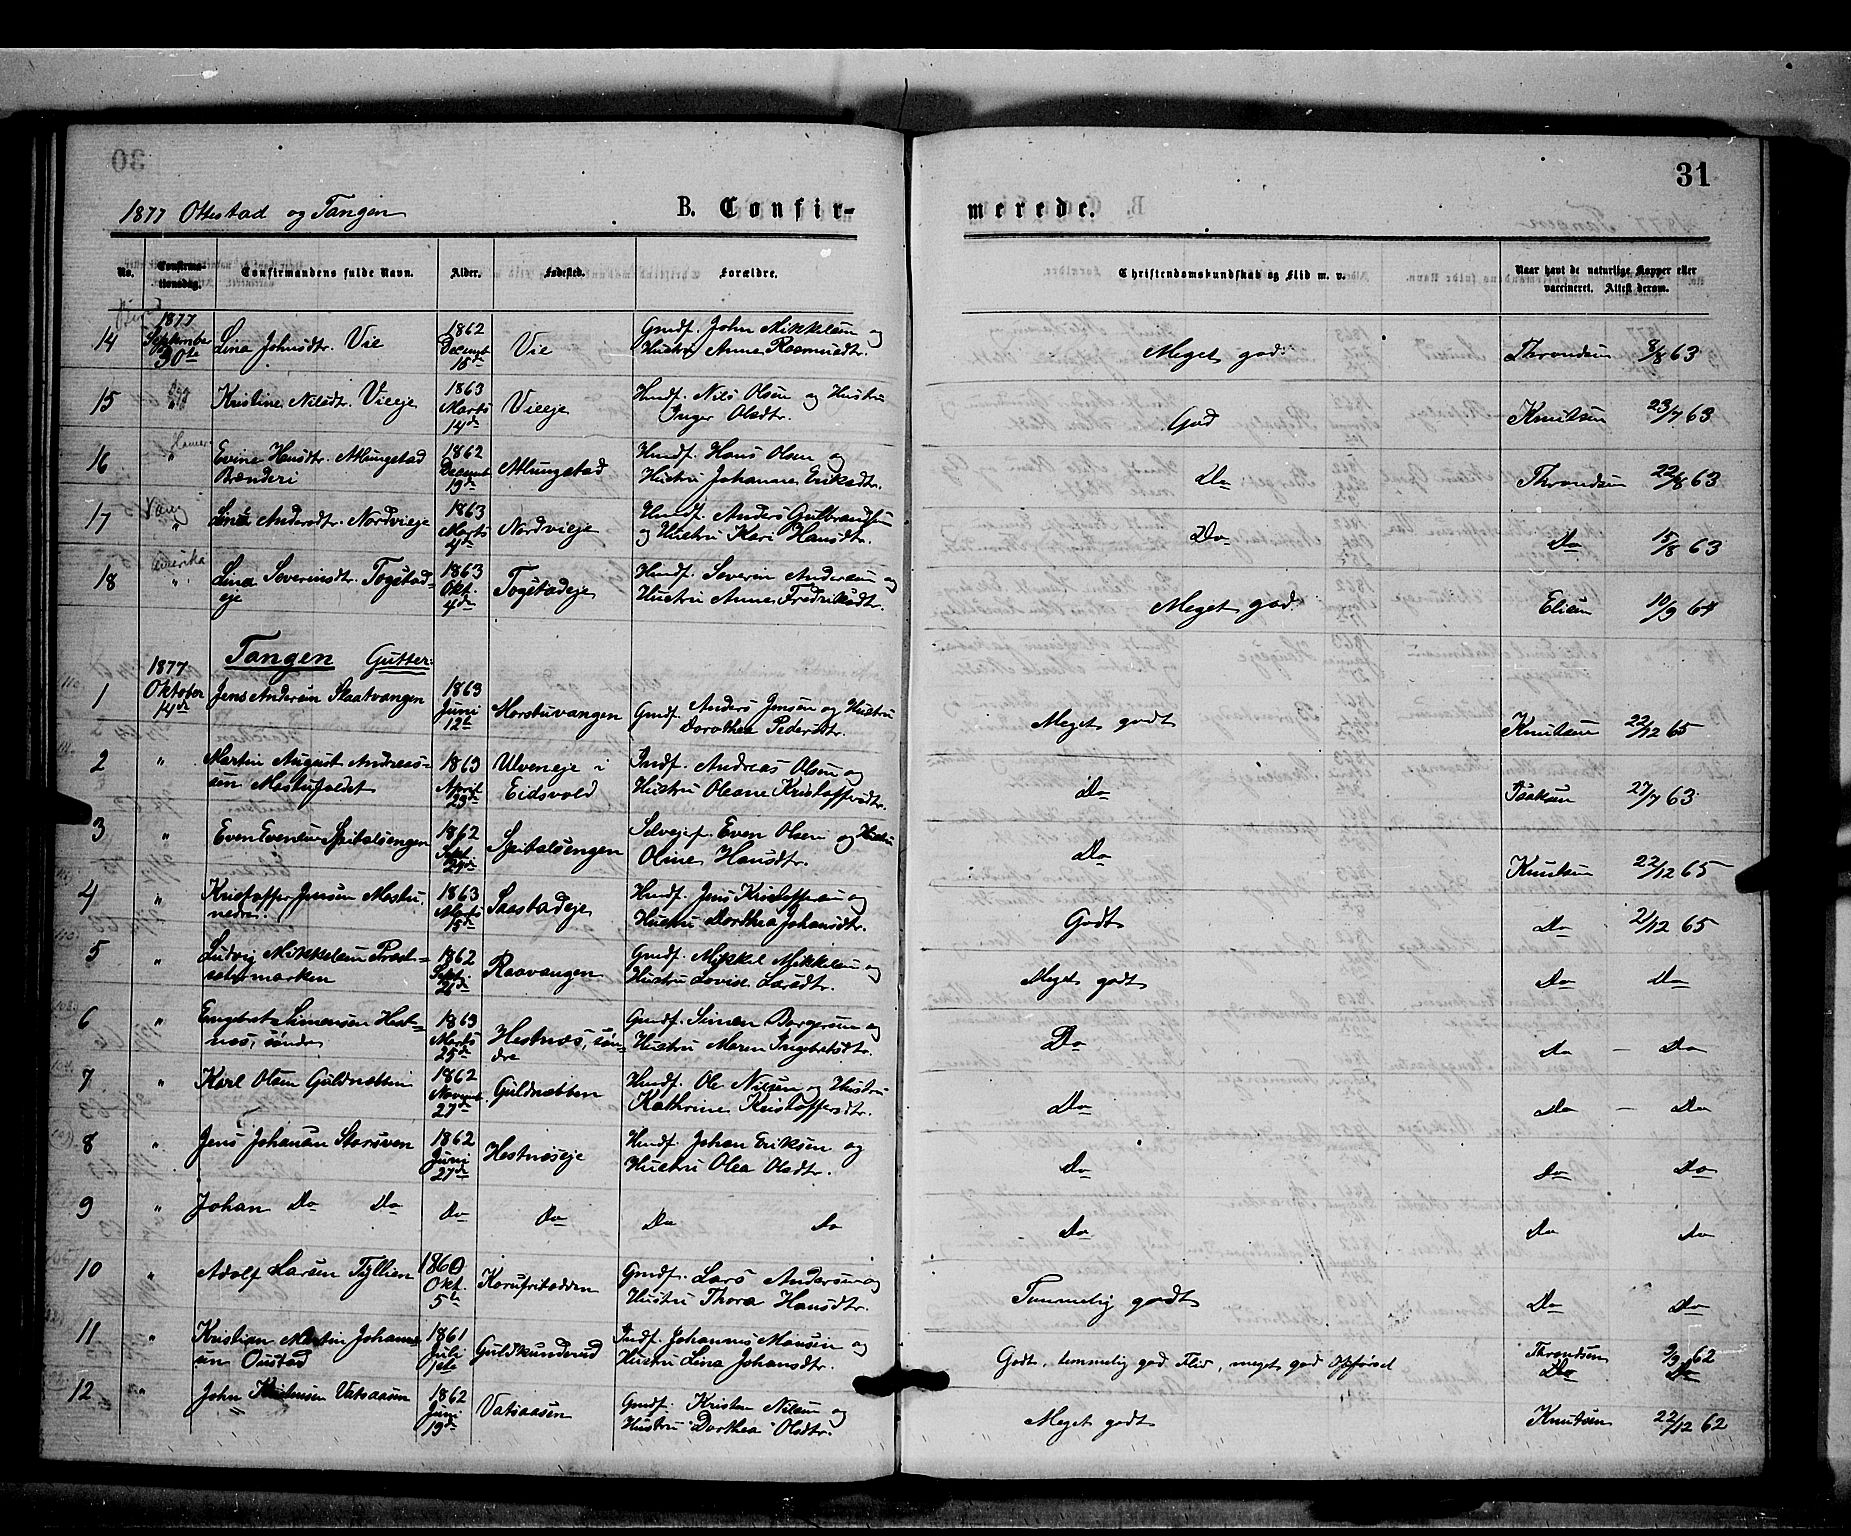 31
1877 Ottestad og Tangen B. Confirmerede.
No. Confirmationsdag. Confirmandens fulde Navn. Alder. Fødested. Forældre. Christendomskundskab og Flid m. v. Naar havt de naturlige Kopper eller vaccineret. Attest derom.
14 1877 September 30te Lina Johnsdtr. Vie 1862 Decembr 15de Vie Gmdf. John Mikkelsen og Hustru Anne Rasmusdtr. Meget god. Throndsen 8/8 63
15 " Kristine Nilsdtr. Vieeje 1863 Marts 14de Vieeje Hmdf. Nils Olsen og Hustru Inger Olsdtr. God Knutsen 23/7 63
16 " Evine Hansdtr. Atlungstad Brænderi 1862 Decembr 19de Atlungstad Hmdf. Hans Olsen og Hustru Johanne Eriksdtr. Do Throndsen 22/8 63
17 Vang " Lina Andersdtr. Nordvieeje 1863 Marts 4de Nordvieje Hmdf. Anders Gulbrandsen og Hustru Kari Hansdtr. Do Do 15/8 63
18 Amerika " Lina Severinsdtr. Togstadeje 1863 Okt. 4de Togstadeje Hmdf. Severin Andersen og Hustru Anne Fredriksdtr. Meget god. Eliesen 10/9 64
Tangen Gutter:
1 1877 Oktober 14de Jens Andersen Skaatvangen 1863 Juni 12te Horstuvangen Gmdf. Anders Jensen og Hustru Dorothea Pedersdtr. Meget godt Knutsen 22/12 65
2 " Martin August Andreassen Mostufaldet 1863 April 23de Ulveneje i Eidsvold Indf. Andreas Olsen og Hustru Oleane Kristoffersdtr. Do Isaksen 27/7 63
3 " Even Evensen Spitalsengen 1862 Sept. Spitalsengen Selvejerf. Even Olsen og Hustru Oline Hansdtr. Do Knutsen 22/12 65
4 " Kristoffer Jensen Mostu nedre 1863 Marts 15de Saastadeje Hmdf. Jens Kristoffersen og Hustru Dorthea Johansdtr. Godt Do 21/12 65
5 " Ludvig Mikkelsen Præstsætermarken 1862 Sept. 21de Raavangen Gmdf. Mikkel Mikkelsen og Hustru Lovise Larsdtr. Meget godt Do Do
6 " Engebret Simensen Hestnes, søndre 1863 Marts 25de Hestnæs, søndre Gmdf. Simen Borgersen og Hustru Maren Ingebretsdtr. Do Do – Do
7 " Karl Olsen Guldnætten 1862 Novembr. 27de Guldnætten Hmdf. Ole Nilsen og Hustru Kathrine Kristoffersdtr. Do Do – Do
8 " Jens Johansen Storsveen 1862 Juni 27de Hestnæseje Hmdf. Johan Eriksen og Hustru Olea Olsdtr. Do Do Do
9 " Johan Do Do Do Do Do Do Do Do Do
10 " Adolf Larsen Tyllien 1860 Okt. 5te Korsfritodden Gmdf. Lars Andersen og Hustru Thora Hansdtr. Temmelig godt Do Do
11 " Kristian Martin Johannesen Oustad 1861 Juli 1ste Guldkunderud Indf. Johannes Hansen og Hustru Lina Johansdtr. Godt, temmelig god Flid, meget god Opførsel Throndsen 9/9 62 Do Do
12 " John Kristensen Vatsaasen 1862 Juni 19de Vatsaasen Gmdf. Kristen Nilsen og Hustru Dorthea Olsdtr. Meget godt Knutsen 22/12 62